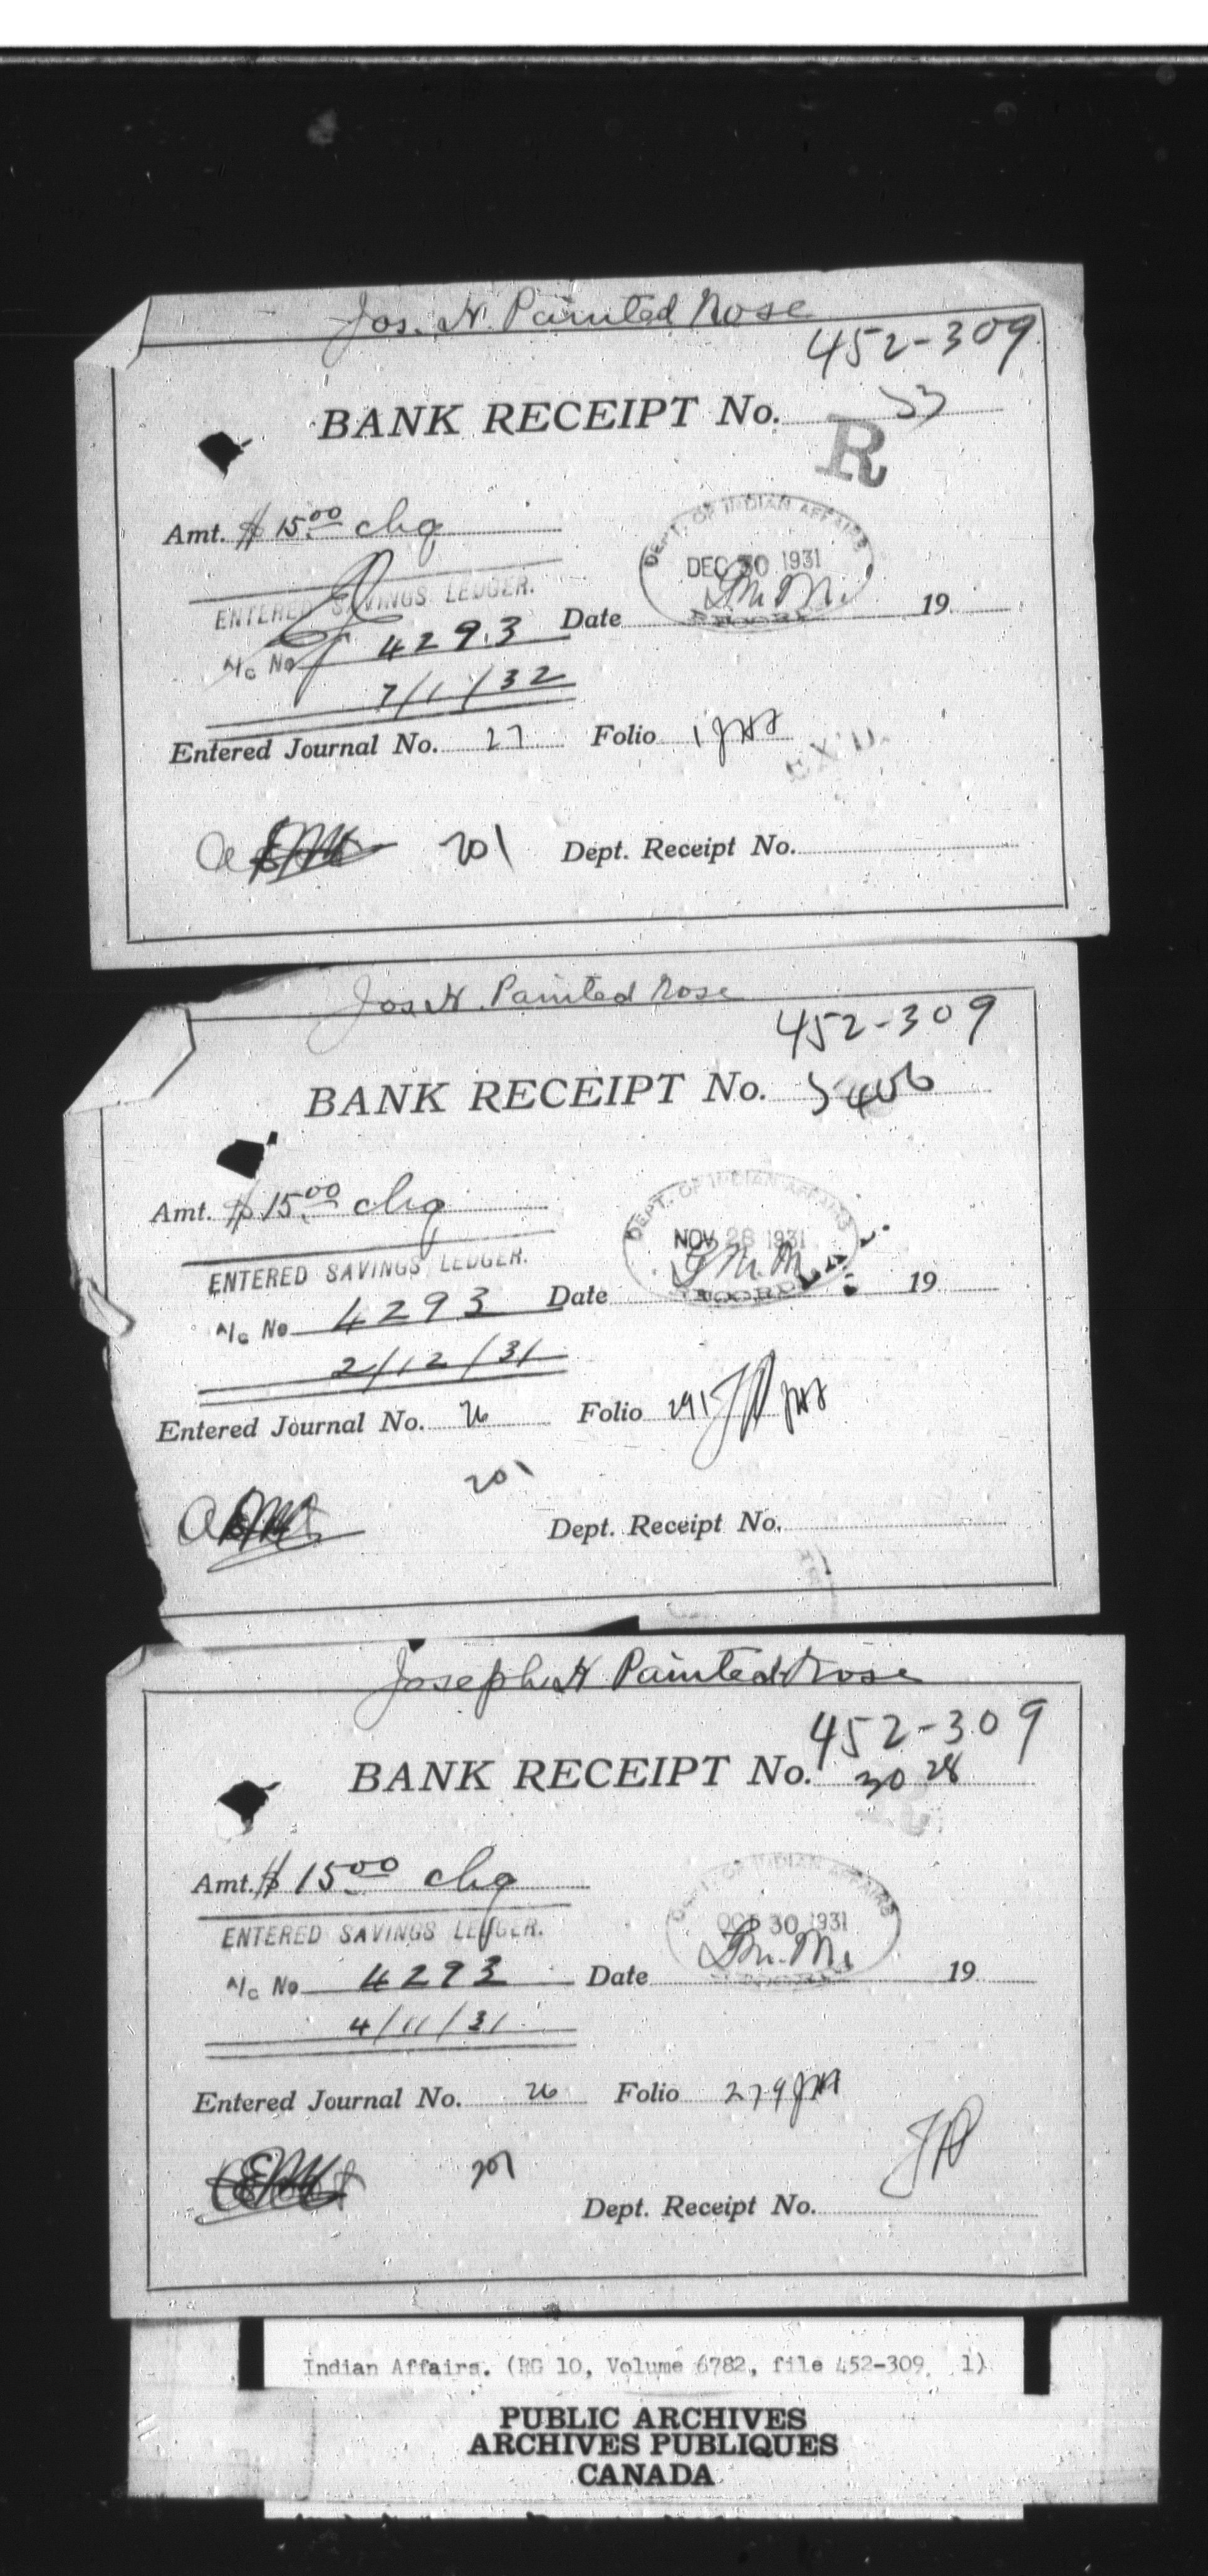 Jos. H. Painted Nose
452-309
BANK RECEIPT No. 53
R
Amt. $15.00 chq
DEPT. OF INDIAN AFFAIRS
DEC 30 1931
ENTERED SAVINGS LEDGER.
A/c No 4293
Date 19
7/1/32
Entered Journal No. 27 Folio 1
EX'D.
201 Dept. Receipt No.
Jos. H. Painted Nose
452-309
BANK RECEIPT No. 5406
Amt. $15.00 chq
DEPT. OF INDIAN AFFAIRS
NOV 28 1931
ENTERED SAVINGS LEDGER.
A/c No 4293
Date 19
2/12/31
Entered Journal No. 26 Folio 291
201
Dept. Receipt No.
Joseph H Painted Nose
452-309
BANK RECEIPT No. 3028
Amt. $15.00 chq
DEPT. OF INDIAN AFFAIRS
OCT 30 1931
ENTERED SAVINGS LEDGER.
A/c No 4293
Date 19
4/11/31
Entered Journal No. 26 Folio 279
201
Dept. Receipt No.
Indian Affairs. (RG 10, Volume 6782, file 452-309, 1)
PUBLIC ARCHIVES
ARCHIVES PUBLIQUES
CANADA